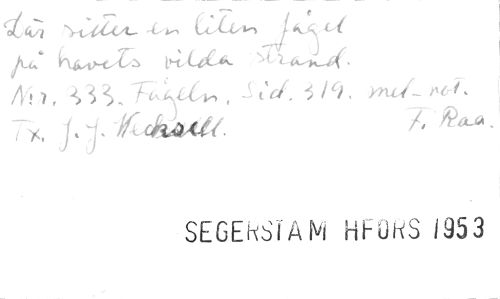 Där sitter en liten fågel
på havets vilda strand.
N:r. 333. Fågeln. Sid. 319. mel-not.
Tx. J. J. Wecksell. F. Raa.
SEGERSTAM HFORS 1953